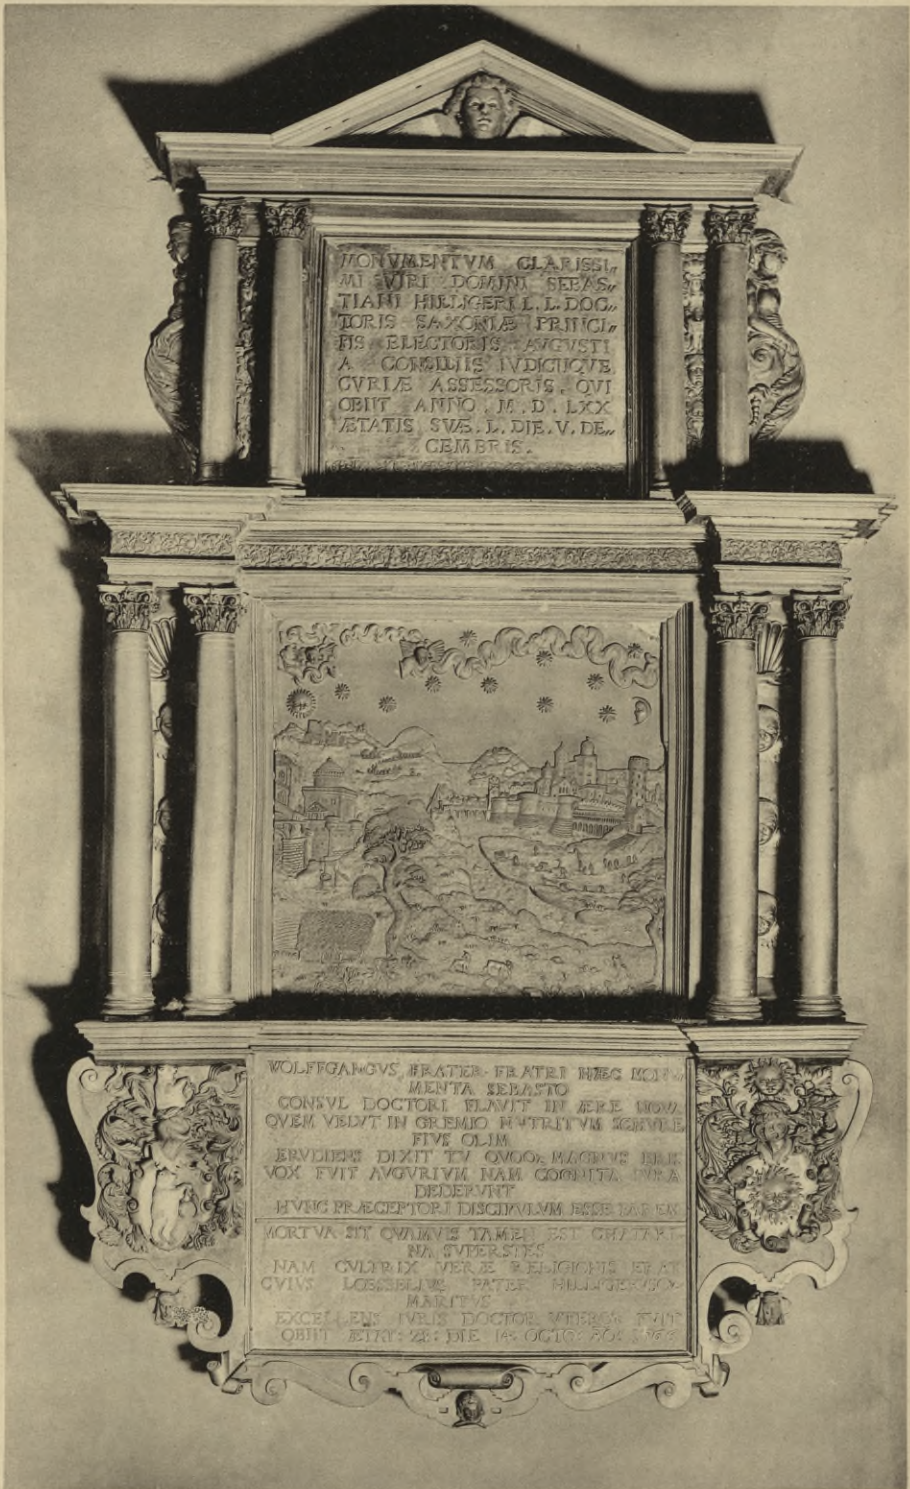 MONVMENTVM CLARISSI„
MI VIRI DOMINI SEBAS„
TIANI HILLIGERI L.L.DOC„
TORIS SAXONIÆ PRINCI„
PIS ELECTORIS AVGVSTI
A CONSILIIS IVDICIIQVE
CVRIÆ ASSESSORIS, QVI
OBIIT ANNO. M. D. LXX
ÆTATIS SVÆ. L. DIE. V. DE„
CEMBRIS.
WOLFFGANGVS, FRATER FRATRI HÆC MONV
MENTA SEBASTO
CONSVL DOCTORI FLAVIT IN ÆRE NOVA
QVEM VELVT IN GREMIO NVTRITVM
FIVS OLIM
ERVDIENS DIXIT TV QVOQ: MAGNVS ERIS
VOX FVIT AVGVRIVM NAM COGNITA IVRA
DEDERVNT
HVNC PRÆCEPTORI DISCIPVLVM ESSE PAREM
MORTVA SIT QVAMVIS TAMEN EST CHATARI
NA SVPERSTES
NAM CVLTRIX VERÆ RELIGIONIS ERAT
CVIVS LOESSELIVS PATER HILLIGERVSQ
MARITVS
EXCELLENS IVRIS DOCTOR VTERQ: FVIT
OBIIT ÆTAT: 28: DIE 14: OCTO: